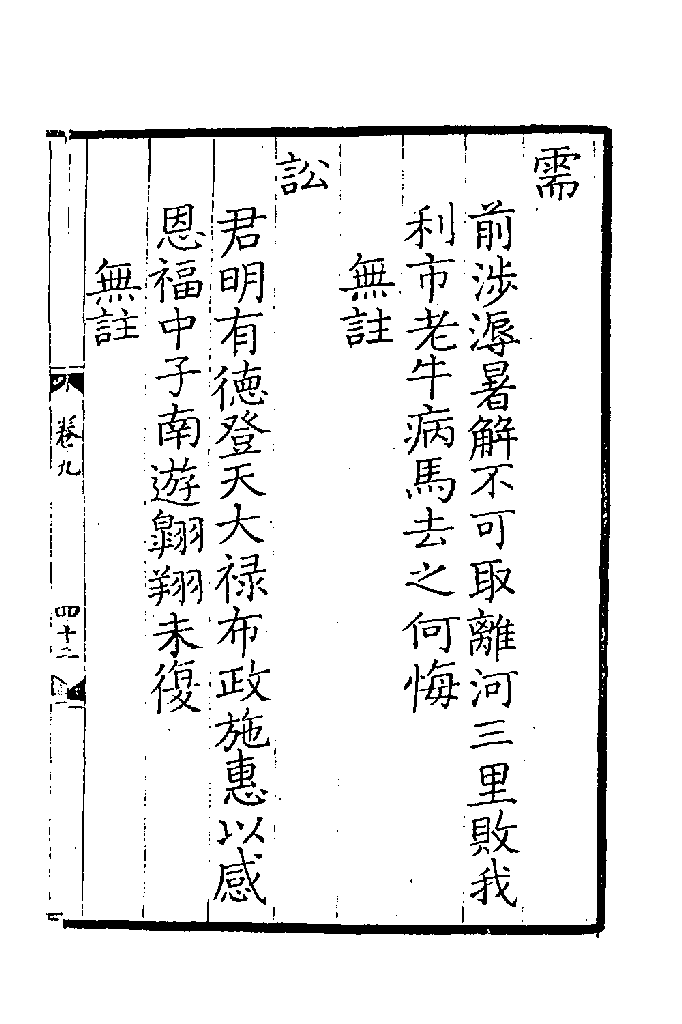 需
前涉溽暑解不可取離河三里敗我
利市老牛病馬去之何悔
無註
訟
君明有德登天大祿布政施惠以感
恩福中子南遊翺翔未復
無註
卷九
四十二